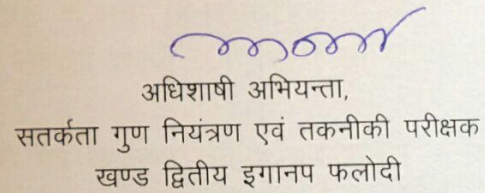 अधिशाषी अभियन्ता,
सतर्कता गुण नियंत्रण एवं तकनीकी परीक्षक
खण्ड द्वितीय इगानप फलोदी